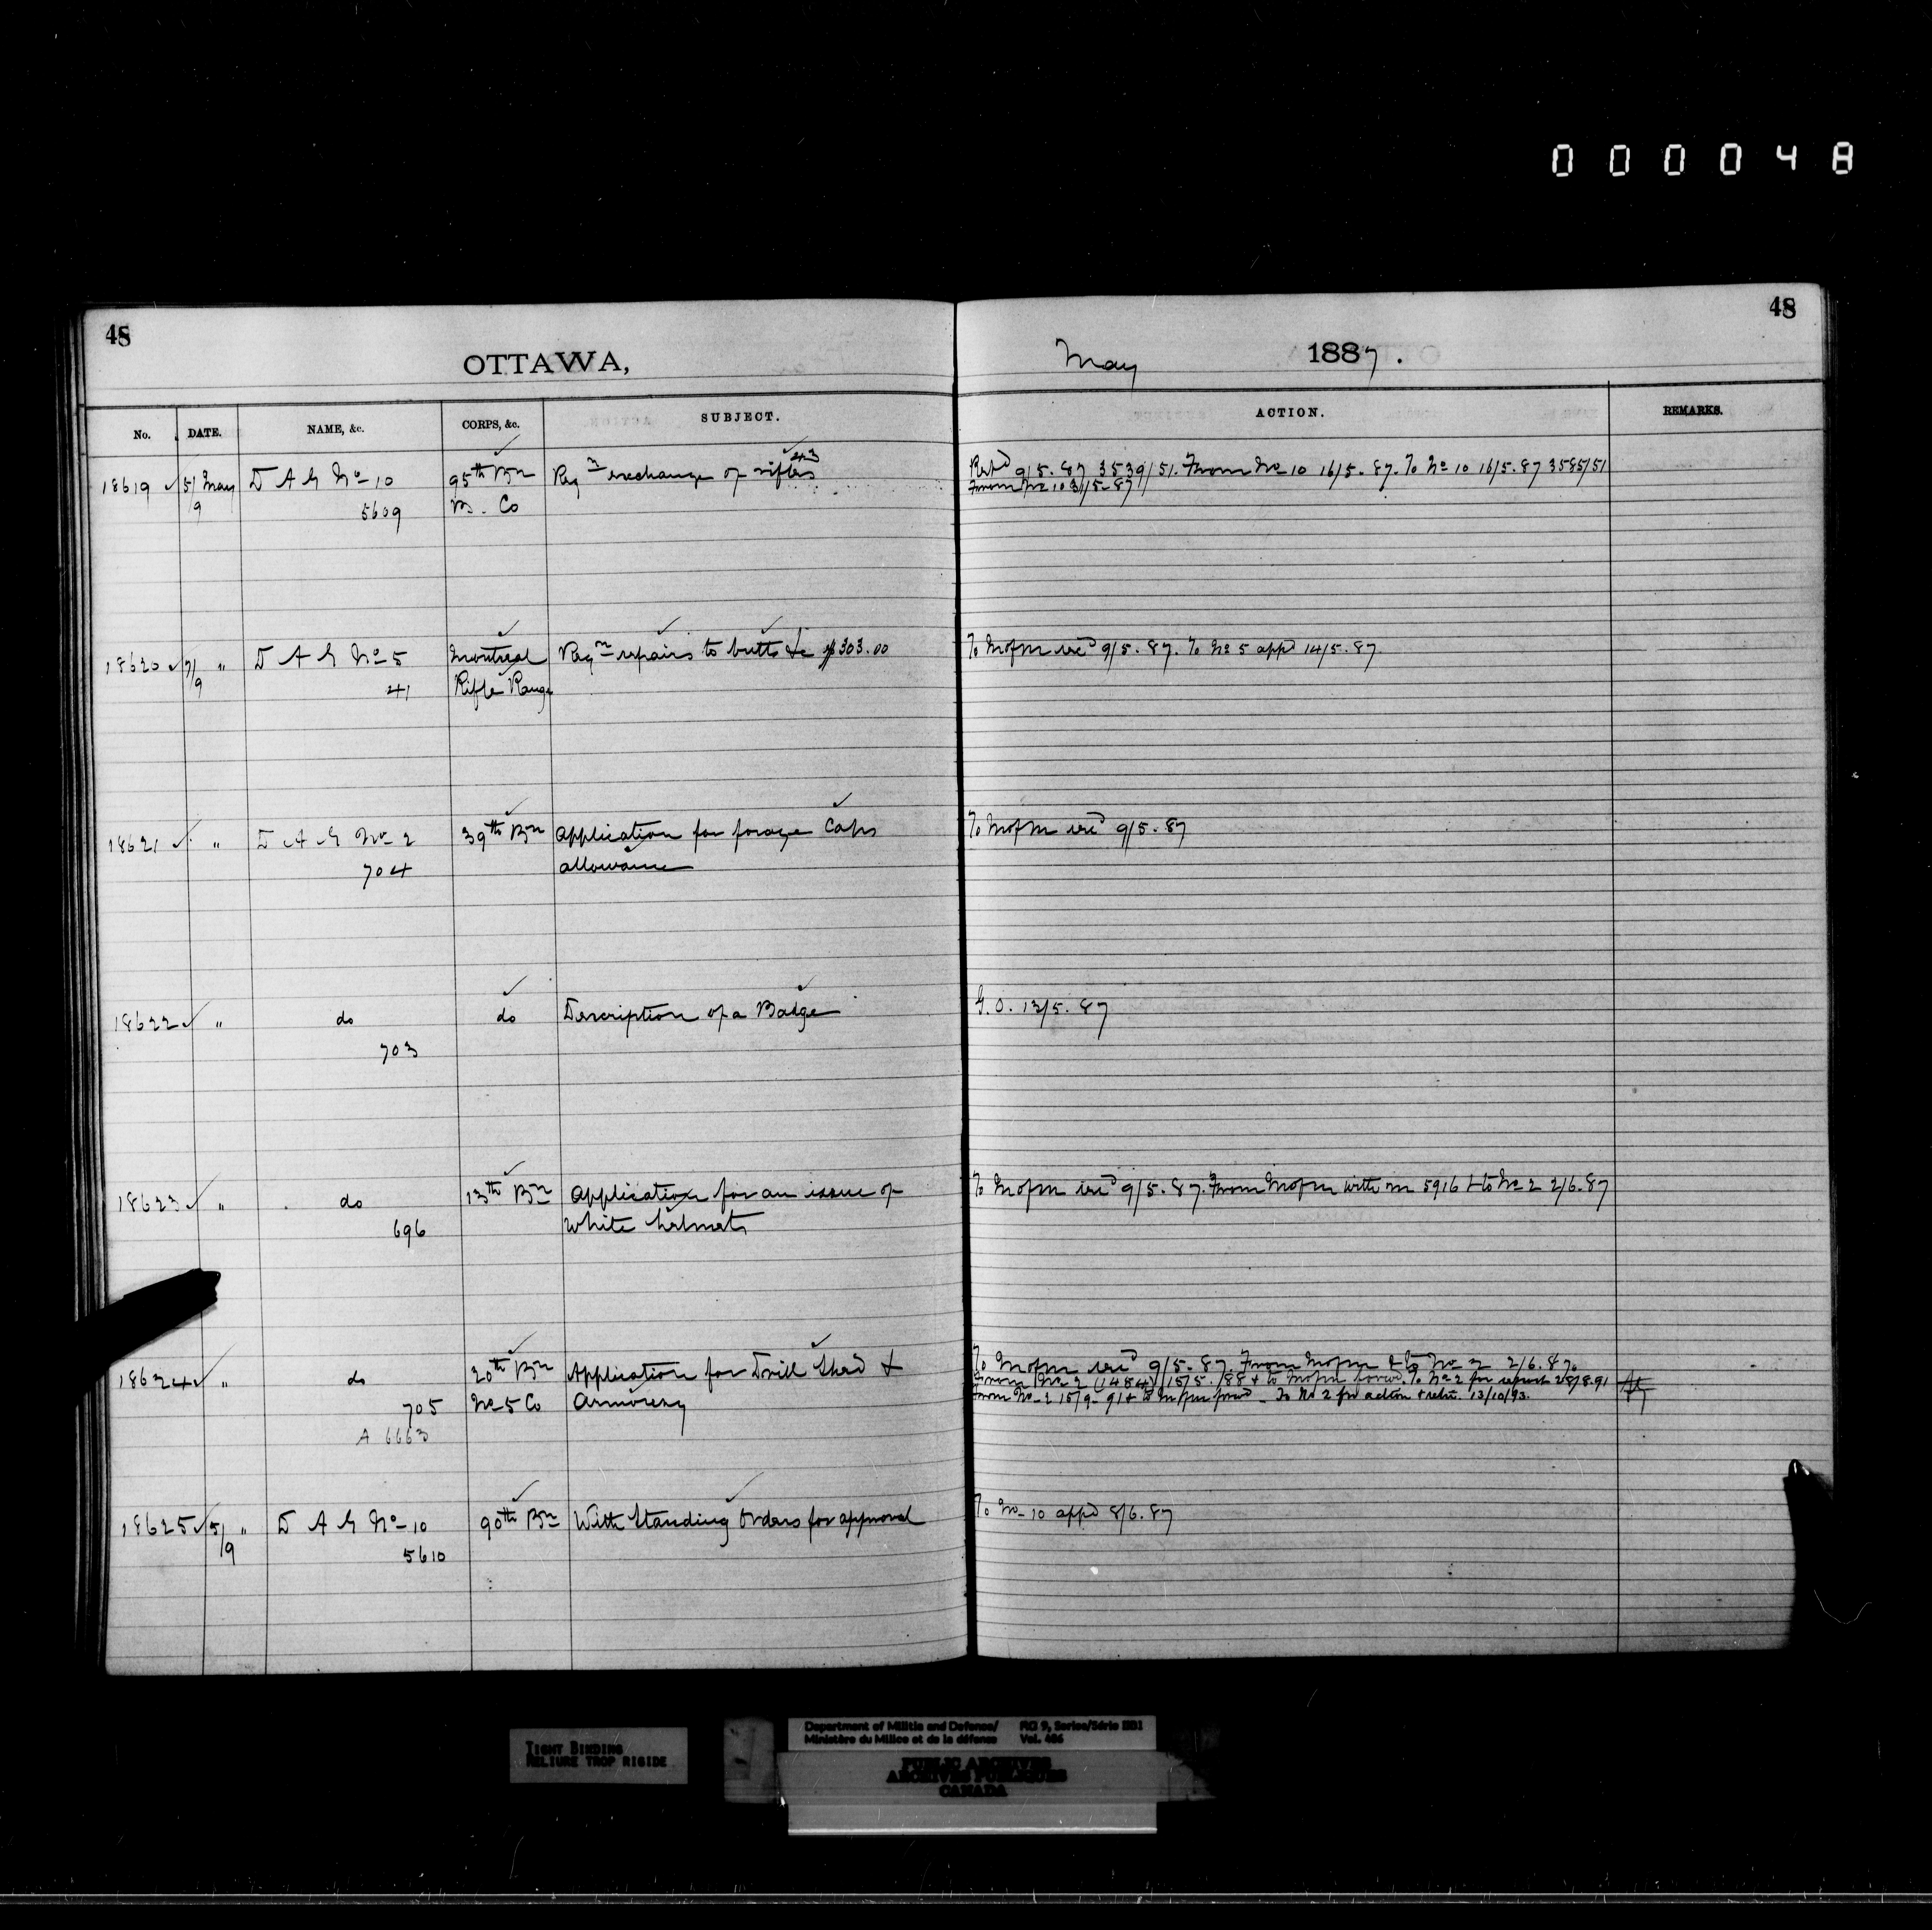 000048
48
48
OTTAWA,
May 1887.
No.
DATE.
NAME, &c.
CORPS, &c.
SUBJECT.
ACTION.
REMARKS.
18619 5/9 May D A G No 10 95th Bn Reqn exchange of rifles
5609 Co
9/5.87 3539/51. From No 10 16/5.87. To No 10 16/5.87 3585/51
From No 10 31/5.87
18620 7/9 " D A G No 5 Montreal Reqn repairs to butts &c $303.00
41 Rifle Range
To M of M 9/5.87. To No 5 appd 14/5.87
18621 " D A G No 2 39th Bn Application for forage Caps
704 allowance
To M of M 9/5.87
18622 " do do Description of a Badge
703
G.O. 13/5.87
18623 " do 13th Bn Application for an issue of
696 White helmets
To M of M 9/5.87. From M of M with m 5916 & to No 2 2/6.87
18624 " do 20th Bn Application for Drill Shed &
705 No 5 Co Armoury
A 6663
To M of M 9/5.87. From M of M & to No 2 2/6.87.
From No 2 (1484) 15/5/88 & to M of M To No 2 for report 28/8.91
From No 2 15/9-91 & to M of M forwd To No 2 for action & retn. 13/10/93.
18625 5/9 " D A G No 10 90th Bn With Standing Orders for approval
5610
To No 10 appd 8/6.87
TIGHT BINDING
RELIURE TROP RIGIDE
Department of Militia and Defence/
Ministère du Milice et de la défense
RG 9, Series/Série IIB1
Vol. 486
PUBLIC ARCHIVES
ARCHIVES PUBLIQUES
CANADA